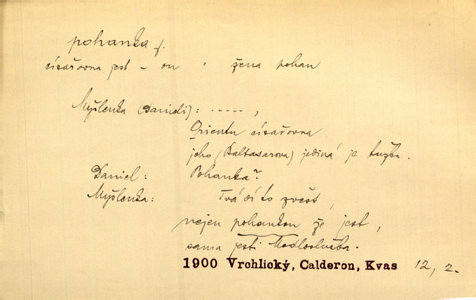 pohanka f.
císařovna jest – on · žena pohan
Myšlenka (Danieli): - - - - - ,
Orientu císařovna
jeho (Baltasarova) jediná je tužba.
Daniel: Pohanka?
Myšlenka: Tvá ci to zvěst,
nejen pohankou že jest,
sama jesti Modloslužba.
1900 Vrchlický, Calderon, Kvas 12, 2.